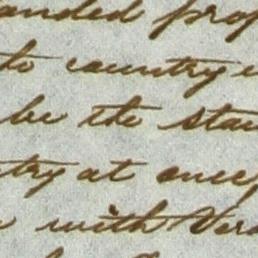 anded prop
to country
be the sta
try at once,
with Ver